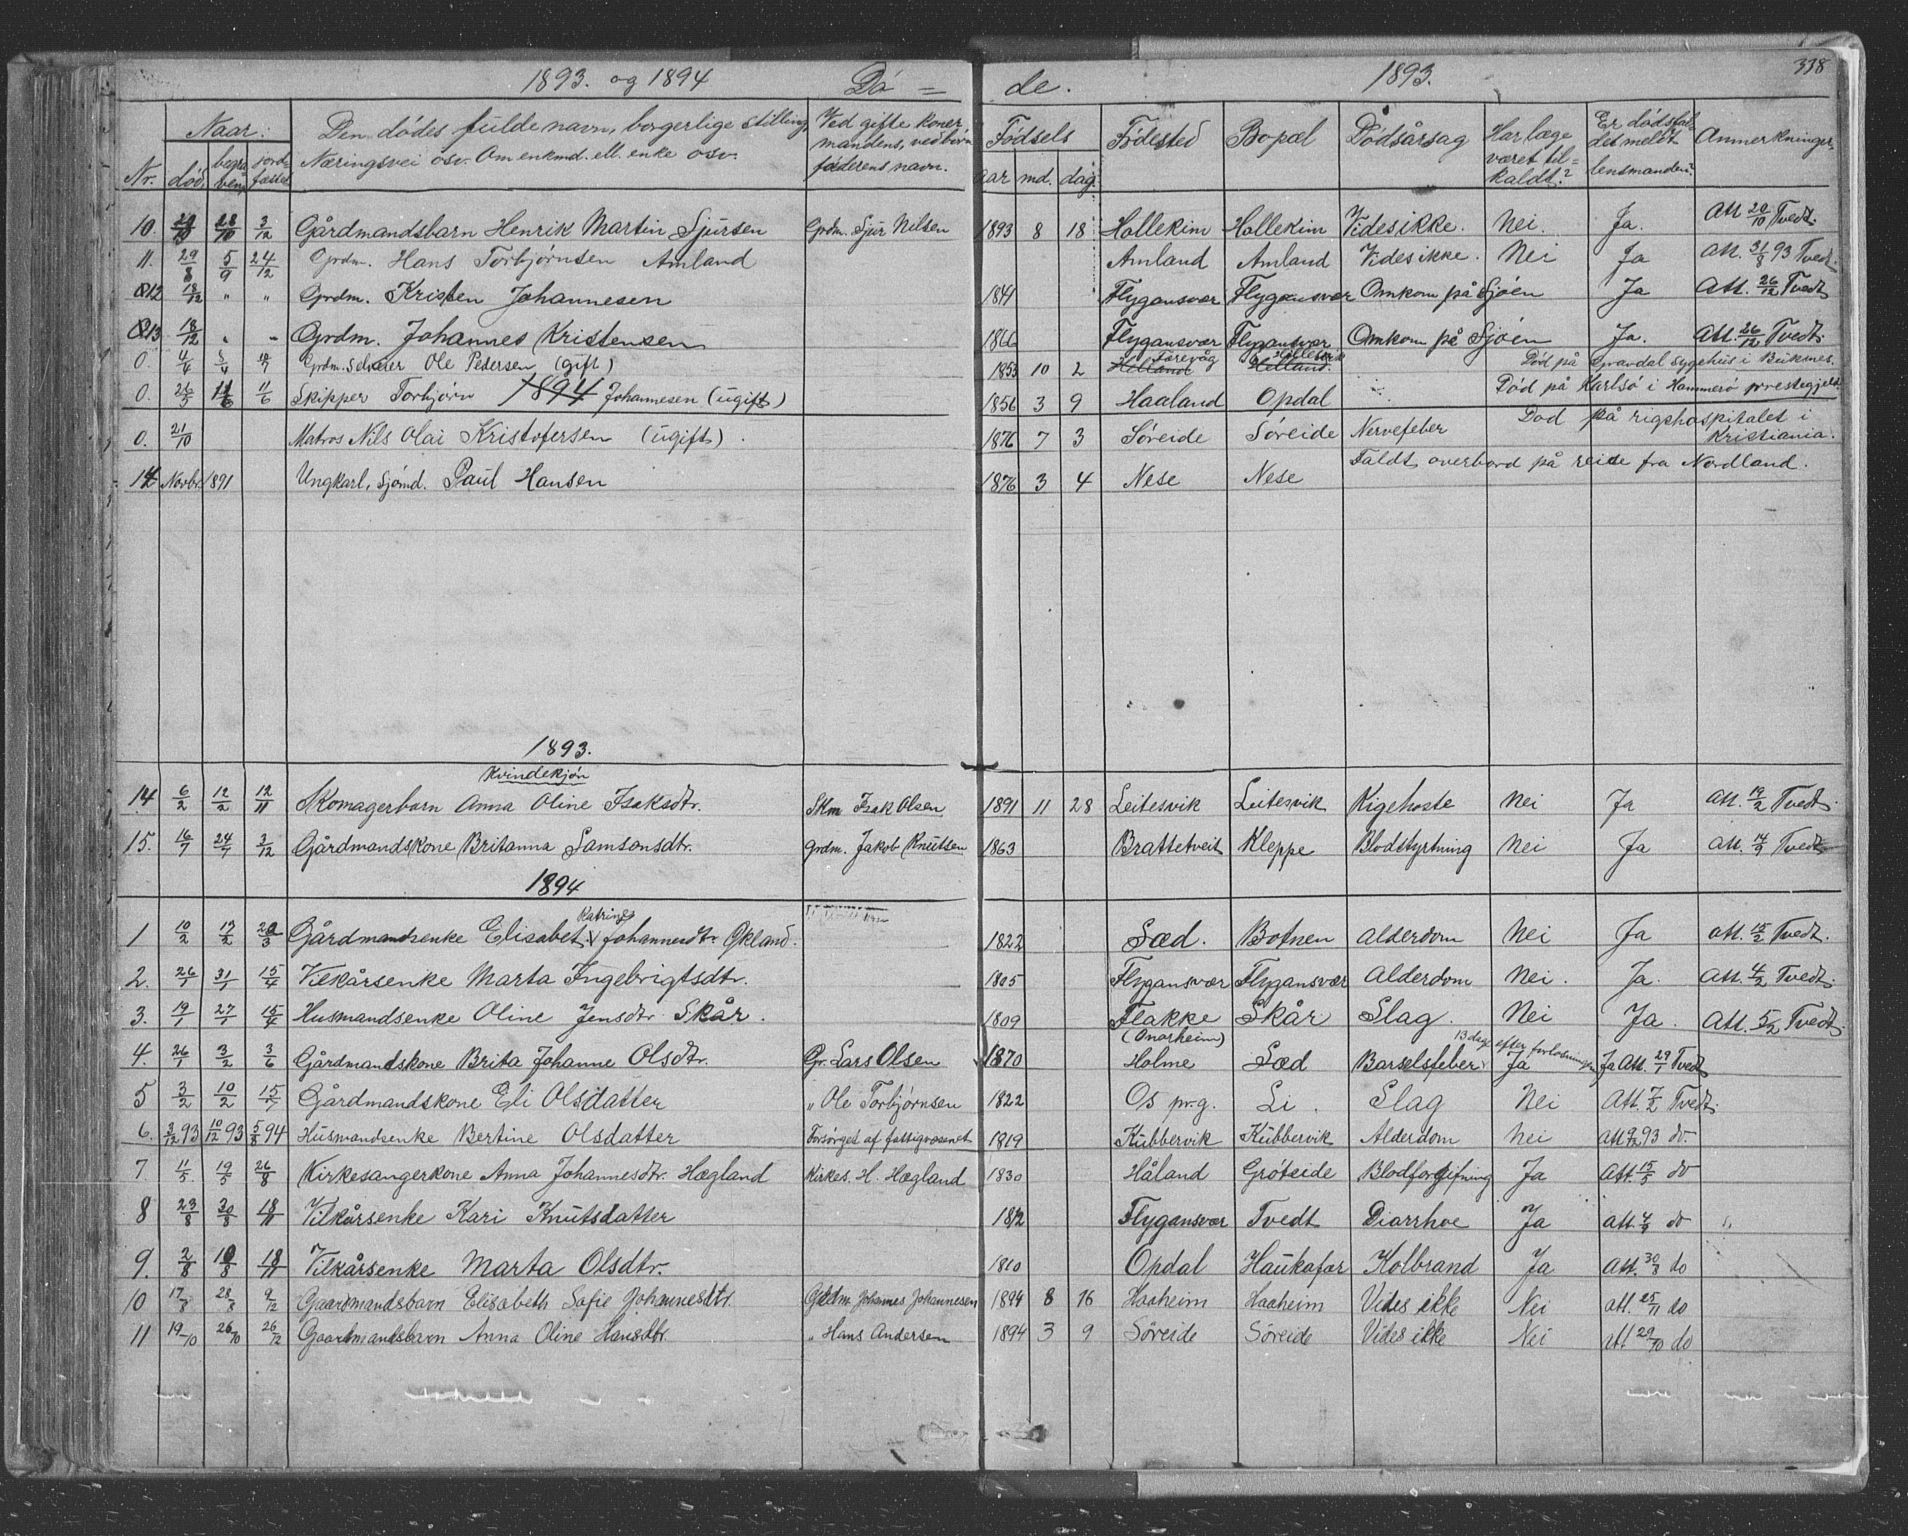 1893. og 1894 Dö = de. 1893. 338
Nr. Naar: død, begra ven, jord fæstet Den dødes fulde navn, borgerlige stilling, Næringsvei osv. Om enkmd. ell. enke osv. Ved gifte koner mandens, ved börn faderens navn. Födsels aar md. dag. Födested Bopæl Dødsårsag Har læge været til= kaldt? Er dødsfal- det meldt lensmanden? Anmerkninger.
10. 28/10 3/12 Gårdmandsbarn Henrik Martin Sjursen Grdm. Sjur Nilsen 1893 8 18 Hollekim Hollekim Vides ikke. Nei. Ja. Att 20/10 Tvedt.
11. 29/8 5/9 24/12 Grdm. Hans Torbjørnsen Amland Amland Amland Vides ikke. Nei Ja Att. 31/8 93 Tvedt.
12 18/12 " " Grdm. Kristen Johannesen 1841 Flygansvær Flygansvær Omkom på Sjöen Ja Att. 26/12 Tvedt
13 18/12 " " Grdm. Johannes Kristensen 1866 Flygansvær Flygansvær Omkom på Sjöen Ja. Att. 26/12 Tvedt
0. 4/4 Grdm. Ole Pedersen (gift) 1853 10 2 Helland Helland. Død på Gravdal sygehus i Buksnes.
0. 26/5 11/6 Skipper Torbjørn 1894 Johannesen (ugift) 1856 3 9 Haaland Opdal Död på Karlsö i Hammerö prestegjeld
0. 21/10 Matros Nils Olai Kristofersen (ugift). 1876 7 3 Söreide Söreide Nervefeber Dod på rigshospitalet i Kristiania.
14 Novbr. 1891 Ungkarl, Sjömd. Paul Hansen 1876 3 4 Nese Nese Faldt overbord på reise fra Nordland.
1893.
Kvindekjön
14. 6/2 12/2 12/11 Skomagerbarn Anna Oline Isaksdtr. Skm Isak Olsen 1891 11 28 Leitesvik Leitesvik Kigehoste Nei Ja Att. 19/2 Tvedt.
15. 16/7 24/7 3/12 Gårdmandskone Britanna Samsonsdtr. Grdm. Jakob Knutsen 1863 Brattetveit Kleppe Blodstyrtning Nei Ja Att. 14/9 Tvedt
1894
1 10/2 17/2 Gårdmandsenke Elisabet Katrine Johannesdtr. Økland. 1822 Sæd. Botnen Alderdom Nei Ja Att. 15/2 Tvedt.
2. 26/1 31/1 15/4 Vilkårsenke Marta Ingebrigtsdtr. 1805 Flygansvær Flygansvær Alderdom Nei. Ja. Att. 4/2 Tvedt.
3. 19/1 27/1 15/4 Husmandsenke Oline Jensdtr Skår. 1809 Flakke (Onarheim) Skår Slag. Nei Ja. Att. 5/2 Tvedt
4. 26/1 3/2 3/6 Gårdmandskone Brita Johanne Olsdtr. Gr. Lars Olsen 1870 Holme Sæd Barselsfeber 13 dage efter forløsningen Ja Ja Att. 29/1 Tvedt
5 3/2 10/2 15/7 Gårdmandskone Eli Olsdatter " Ole Torbjørnsen 1822 Os pr.g. Li. Slag Nei Att. 7/2 Tvedt.
6. 3/12 93 10/12 93 5/8 94 Husmandsenke Bertine Olsdatter Forsörget af fattigvæsenet 1819 Kubbervik Kubbervik Alderdom Nei Att 9/12 93 do.
7. 11/5 19/5 26/8 Kirkesangerkone Anna Johannesdtr. Hægland Kirkes. H. Hægland 1830 Håland Gröteide Blodforgifning Ja Att. 15/5 do
8 23/8 30/8 18/11 Vilkårsenke Kari Knutsdatter 1812 Flygansvær Tvedt Diarrhoe Ja Att. 4/9 do "
9. 2/8 10/8 18/11 Vilkårsenke Marta Olsdtr. 1810 Opdal Haukafær Kolbrand Ja Att. 30/8 do
10 17/8 28/8 9/12 Gaardmandsbarn Elisabeth Sofie Johannesdtr. Grdm. Johannes Johannesen 1894 8 16 Haaheim Haaheim Vides ikke Nei Att. 25/11 do
11 19/10 26/10 26/12 Gaardmandsbarn Anna Oline Hansdtr. " Hans Andersen 1894 3 9 Söreide Söreide Vides ikke Nei Att 29/10 do